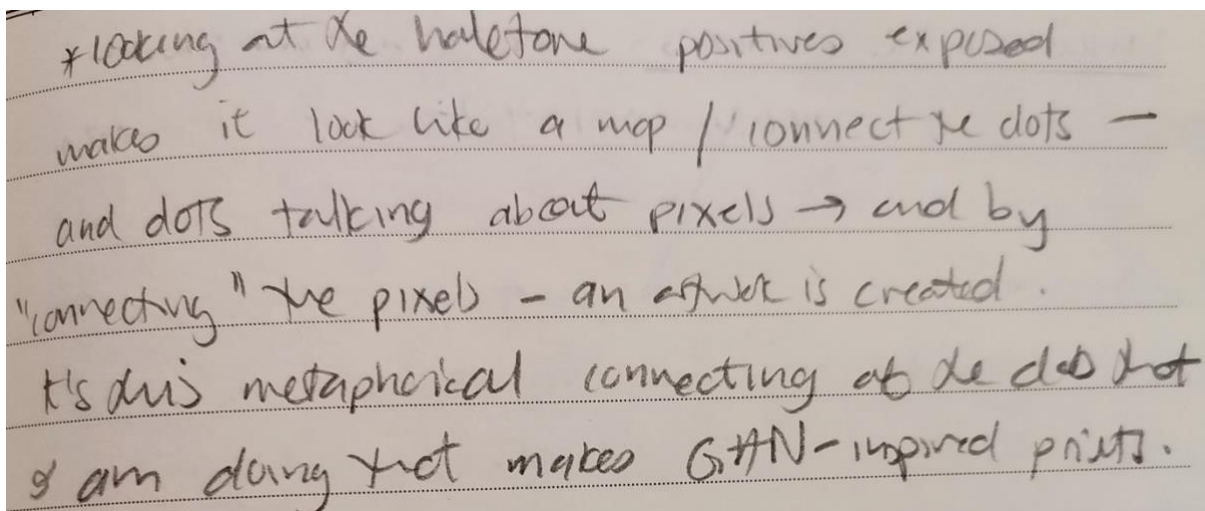 *looking at the halftone positives exposed
makes it look like a map / connect the dots -
and dots talking about pixels → and by
"connecting" the pixels - an artwork is created.
It's this metaphorical connecting of the dots that
I am doing that makes GAN-inspired prints.